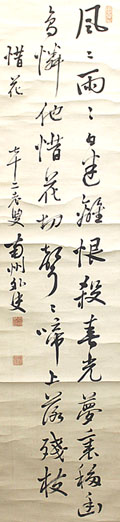 風〻雨〻白迷離恨殺春光夢裏移幽
鳥憐他惜花切聲〻啼上落殘枝
惜花
七十二叟南州外史